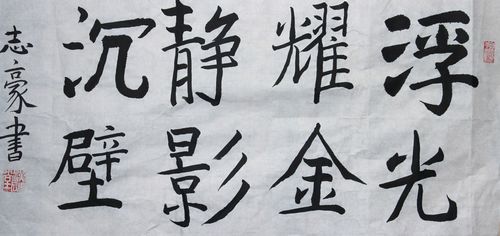 浮光
耀金
静影
沉壁
志豪書